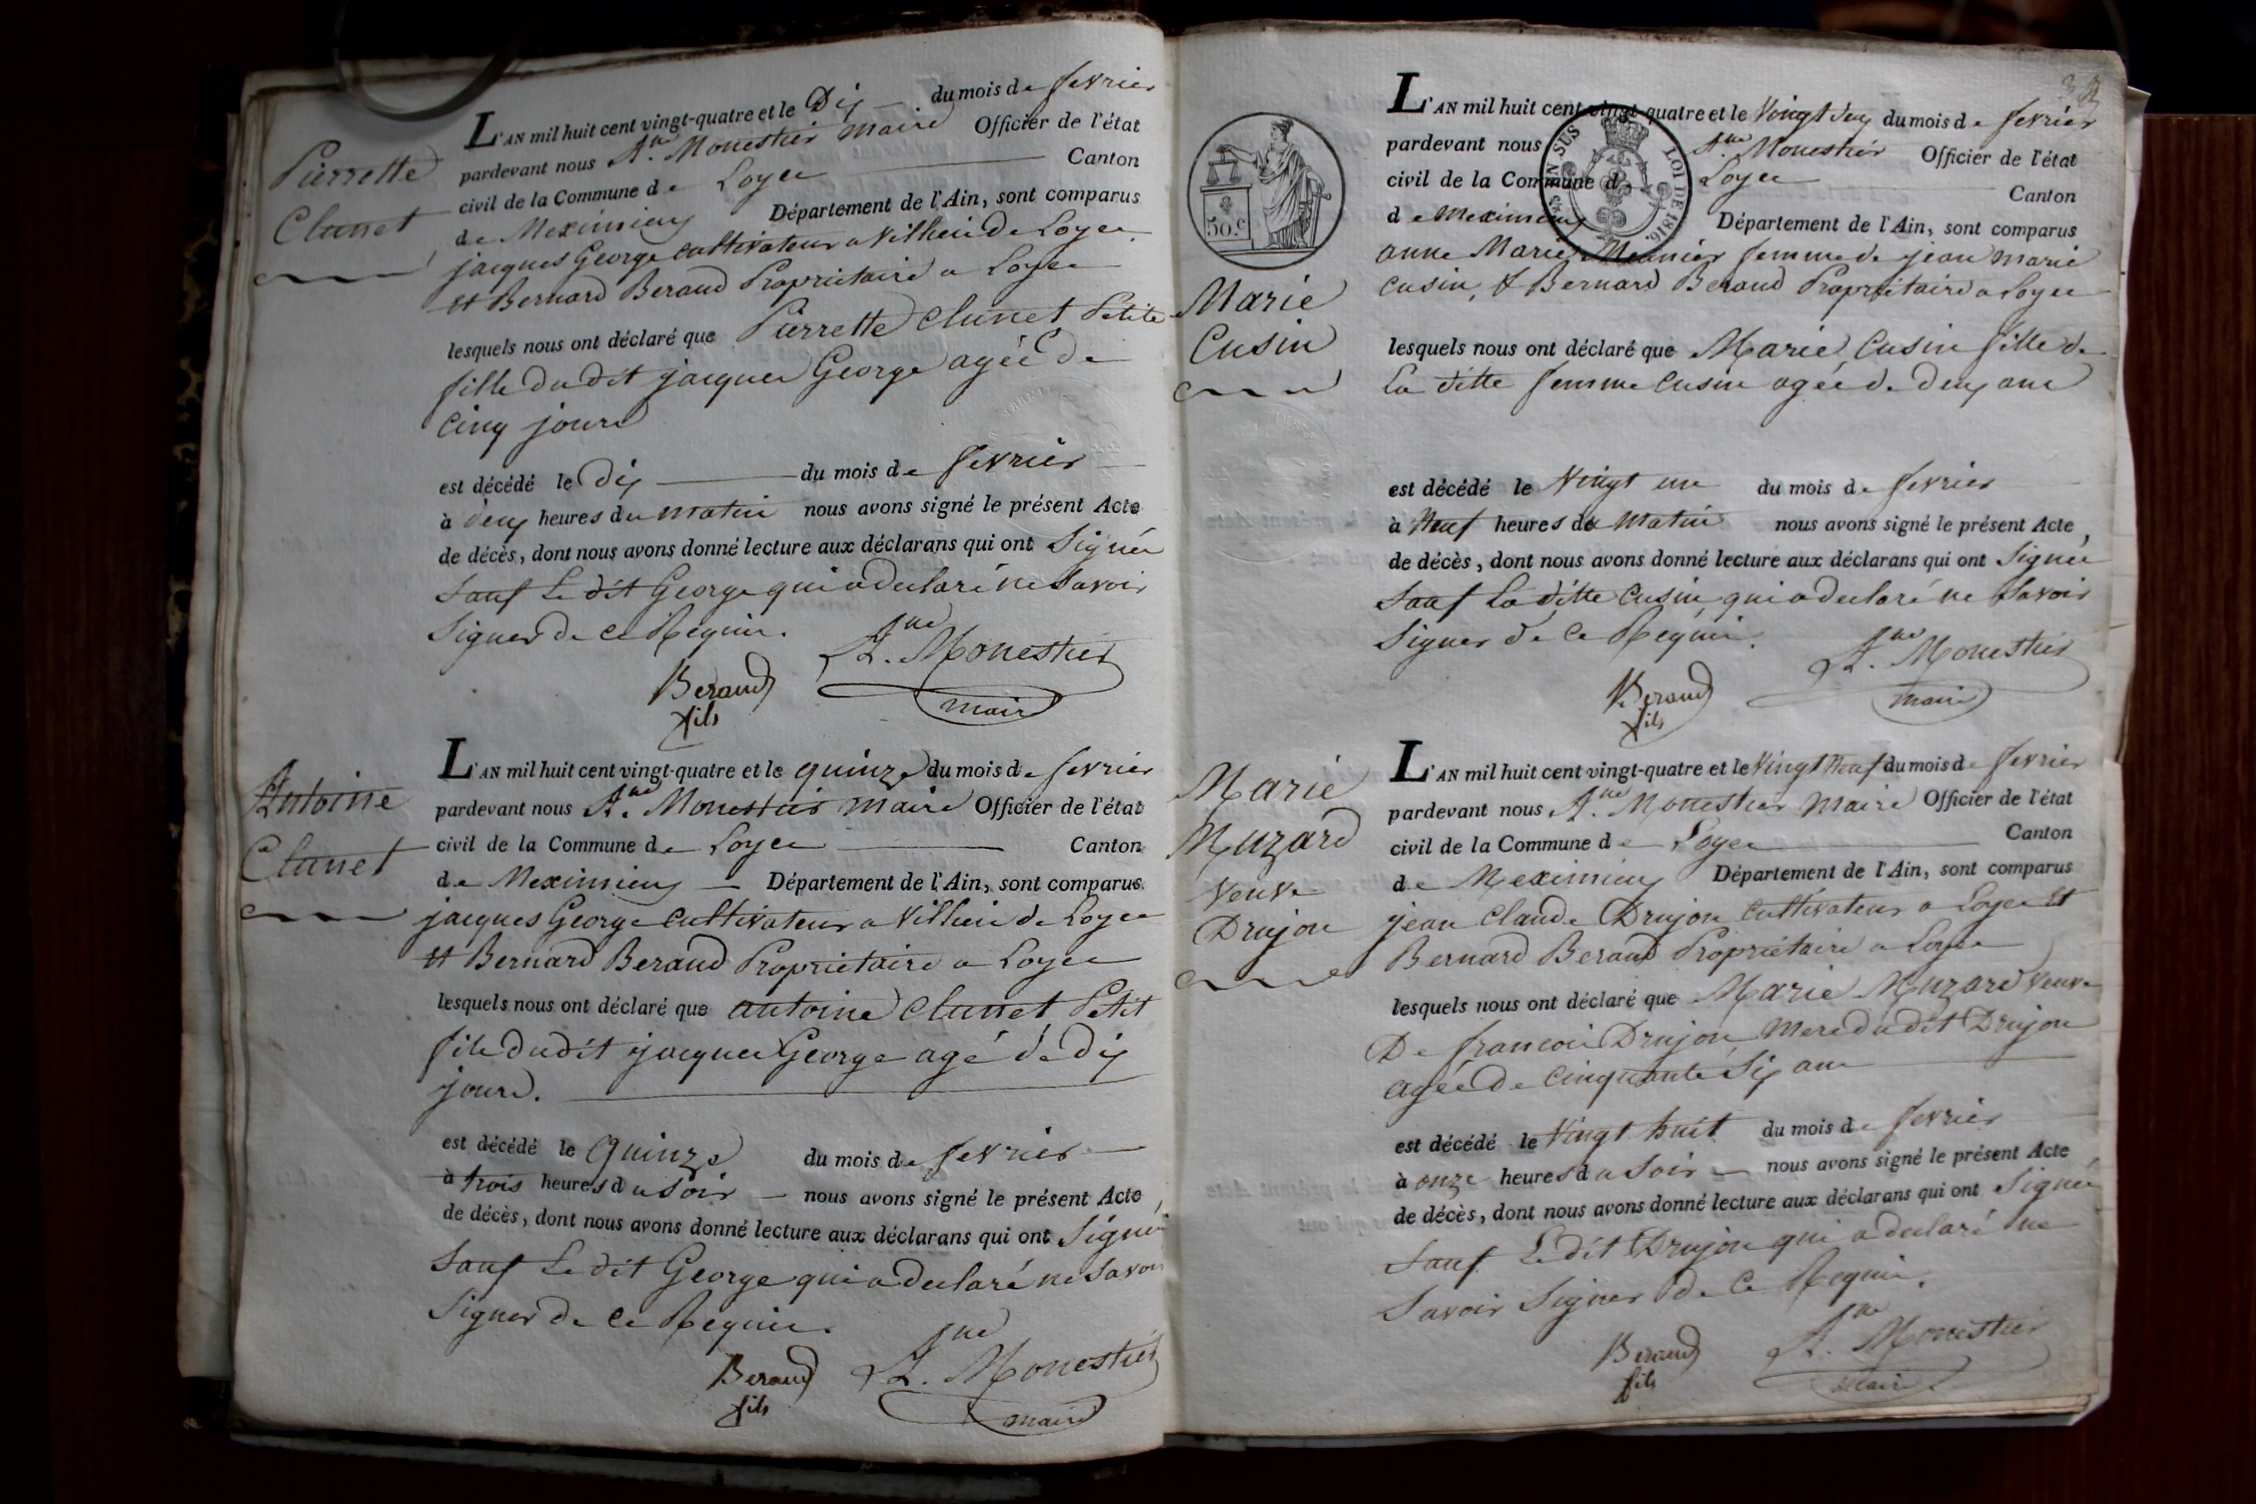 Pierrette
Clunet
L'AN mil huit cent vingt-quatre et le Dix du mois de fevrier
pardevant nous A.ne Monestier maire Officier de l'état
civil de la Commune de Loyes Canton
de Meximieux Département de l'Ain, sont comparus
jacques George cultivateur a Villieu de Loyes
et Bernard Beraud Propriétaire a Loyes
lesquels nous ont déclaré que Pierrette Clunet Petite
fille du dit jacques George agée de
cinq jours
est décédé le dix du mois de fevrier
à deux heures du matin nous avons signé le présent Acte
de décès, dont nous avons donné lecture aux déclarans qui ont Signés
Sauf Le dit George qui a declaré ne Savoir
Signer de ce Requis.
A.ne Monestier
Beraud
fils
maire
Antoine
Clunet
L'AN mil huit cent vingt-quatre et le quinze du mois de fevrier
pardevant nous A.ne Monestier maire Officier de l'état
civil de la Commune de Loyes Canton
de Meximieux Département de l'Ain, sont comparus
jacques George cultivateur a Villieu de Loyes
et Bernard Beraud Propriétaire a Loyes
lesquels nous ont déclaré que antoine Clunet Petit
fils du dit jacques George agé de dix
jours.
est décédé le quinze du mois de fevrier
à trois heures du soir nous avons signé le présent Acte
de décès, dont nous avons donné lecture aux déclarans qui ont Signés
Sauf Le dit George qui a declaré ne Savoir
Signer de ce Requis.
A.ne Monestier
Beraud
fils
maire
50.c
LOI DE 1816.
Marie
Cusin
L'AN mil huit cent vingt-quatre et le Vingt deux du mois de fevrier
pardevant nous A.ne Monestier Officier de l'état
civil de la Commune de Loyes Canton
de Meximieux Département de l'Ain, sont comparus
anne Marie Meunier femme de jean marie
Cusin, & Bernard Beraud Propriétaire a Loyes
lesquels nous ont déclaré que Marie Cusin fille de
La ditte femme Cusin agée de deux ans
est décédé le Vingt un du mois de fevrier
à Neuf heures du Matin nous avons signé le présent Acte
de décès, dont nous avons donné lecture aux déclarans qui ont Signés
Sauf La ditte Cusin qui a declaré ne Savoir
Signer de ce Requis.
A.ne Monestier
Beraud
fils
maire
Marie
Muzard
Veuve
Drujon
L'AN mil huit cent vingt-quatre et le Vingt Neuf du mois de fevrier
pardevant nous A.ne Monestier maire Officier de l'état
civil de la Commune de Loyes Canton
de Meximieux Département de l'Ain, sont comparus
jean Claude Drujon cultivateur a Loyes et
Bernard Beraud Propriétaire a Loyes
lesquels nous ont déclaré que Marie Muzard Veuve
De francois Drujon, mere du dit Drujon
agée de cinquante Six ans
est décédé le Vingt huit du mois de fevrier
à onze heures du Soir nous avons signé le présent Acte
de décès, dont nous avons donné lecture aux déclarans qui ont Signés
Sauf Le dit Drujon qui a declaré ne
Savoir Signer de ce Requis.
A.ne Monestier
Beraud
fils
maire